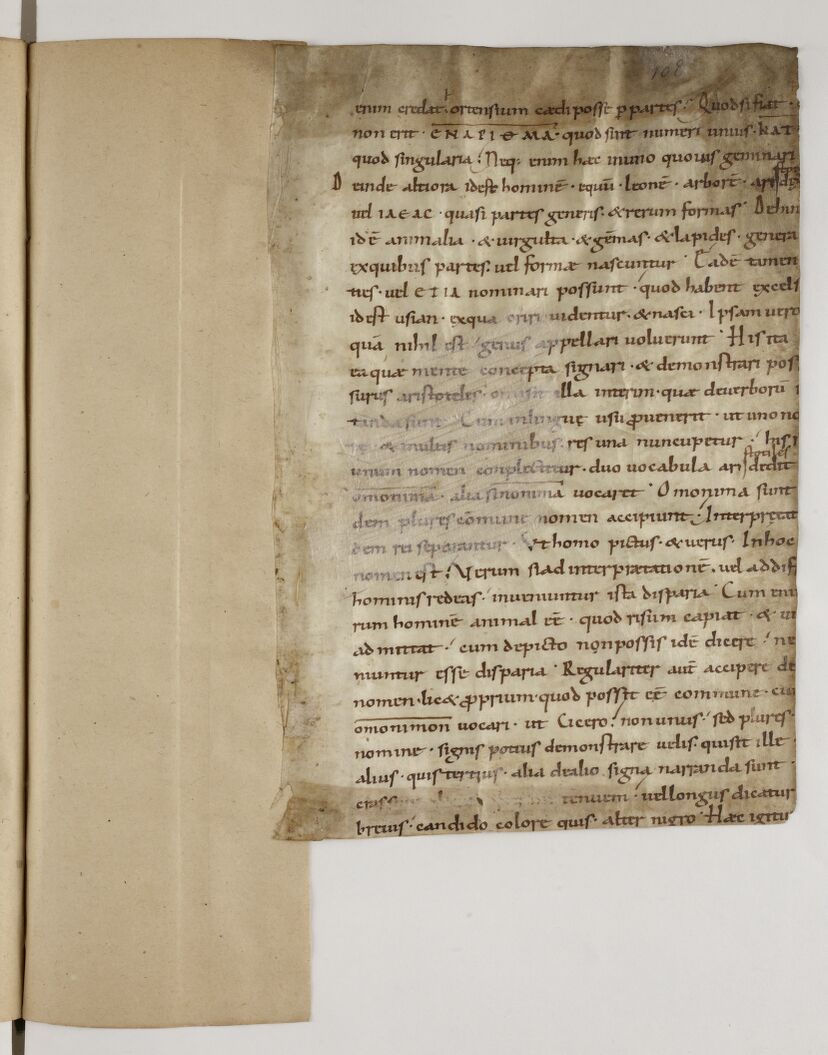 108
enim credat ortensium cædi posse ꝑ partes. Quod si fiat ·
non erit · ENAPIOMA · quod sint numeri unius · KAT
quod singularia. Neq; enim hac in uno quouis geminari
Deinde altiora idest hominē · equū · leonē · arborē ·
uel IAEAC · quasi partes generis · & rerum formas. Dehin
idē animalia · & uirgulta · & gēmas · & lapides · genera
ex quibus partes uel formæ nascuntur. Eadē tamen
ties · uel ETIA nominari possunt · quod habent excels
idest usian · ex qua oriri uidentur · & nasci · Ipsam uero
quā nihil est genus appellari uoluerunt. His ita
ea quæ mente concepta signari · & demonstrari pos
surus aristoteles omisit illa interim quæ de uerborū
Cum in lingue usu ꝓuenerit · ut uno no
& multis nominibus res una nuncupetur · his
unum nomen complectitur · duo uocabula dedit
omonima · alia sinonima uocaret. Omonima sunt
dem plures cōmune nomen accipiunt. Interpretat
dem rei separantur · Vt homo pictus · & uerus · In hoc
nomen est. Verum si ad interpretationē · uel ad dif
hominis redeas · inueniuntur ista disparia. Cum eni
rum hominē animal eē · quod risum capiat · & ui
admittat · cum de picto non possis idē dicere · ne
niuntur esse disparia. Regulariter aut̄ accipere de
nomen · lic& ꝓprium quod possit eē commune · cui
omonimon uocari · ut Cicero · non unus · sed plures ·
nomine · signis potius demonstrare uelis · quis sit ille
alius · quis tertius · alia de alio signa narranda sunt ·
tenuem · uel longus dicatur
breuis · candido colore quis · alter nigro. Hæc igitu